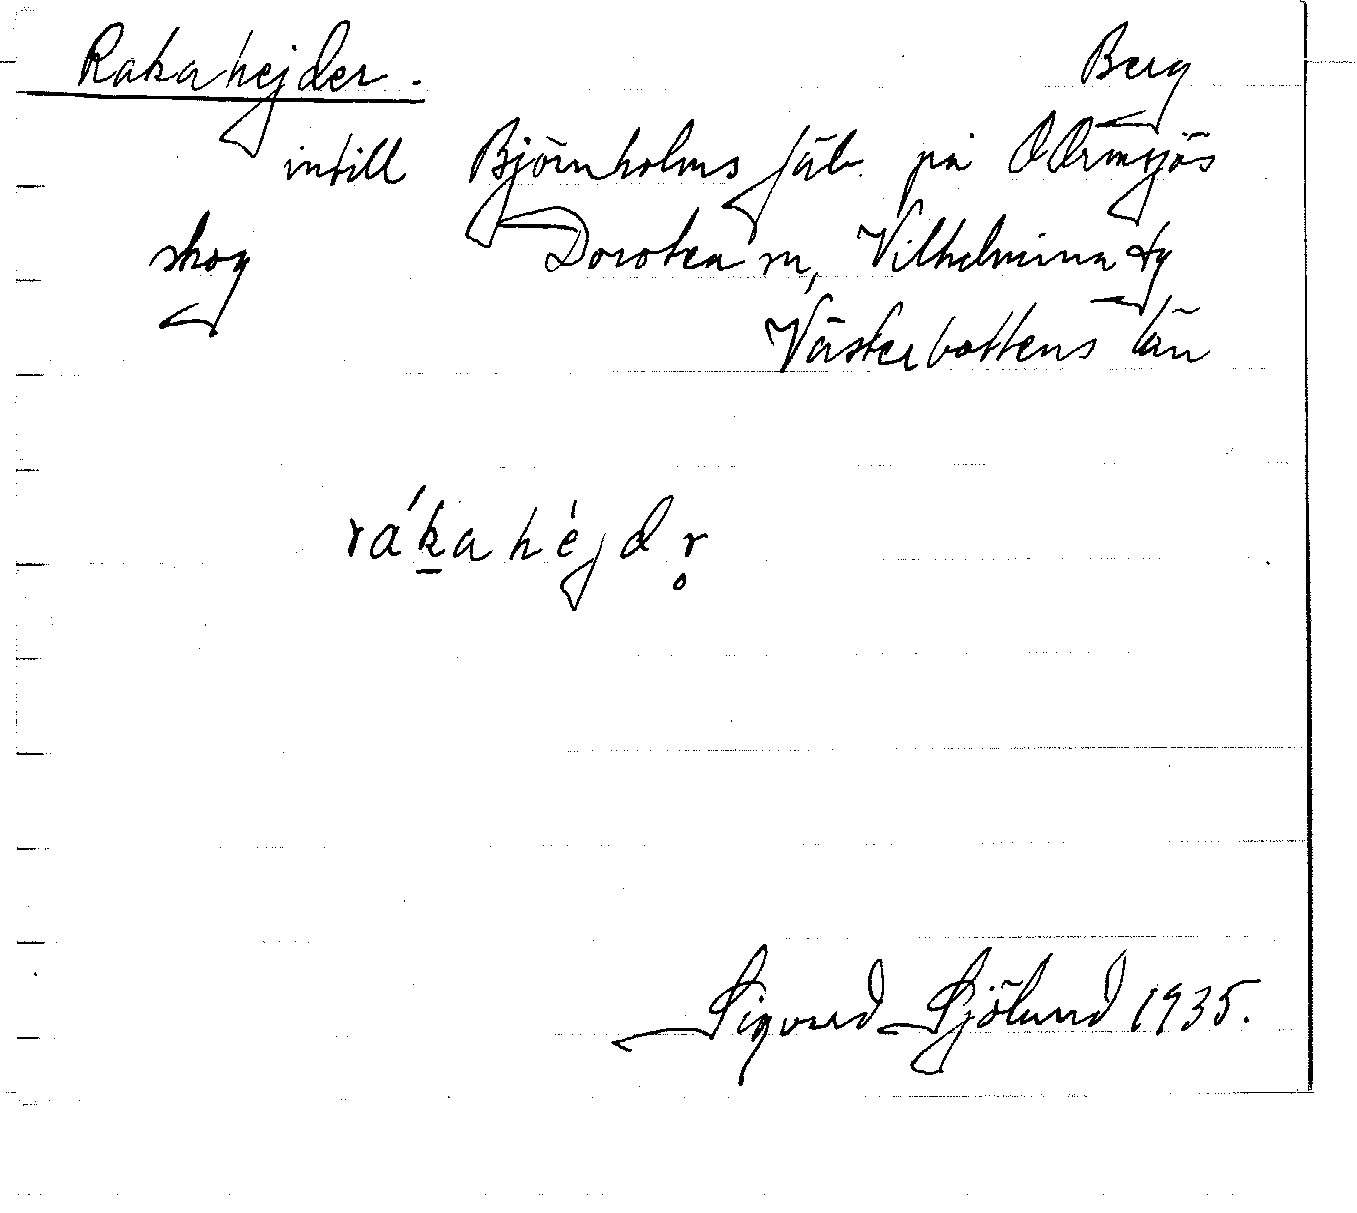 Rakahejder. Berg
intill Björnholms fäb. på Ormsjös
skog Dorotea sn, Vilhelmina tg
Västerbottens län
rákahéjdr̥
Sigvard Sjölund 1935.